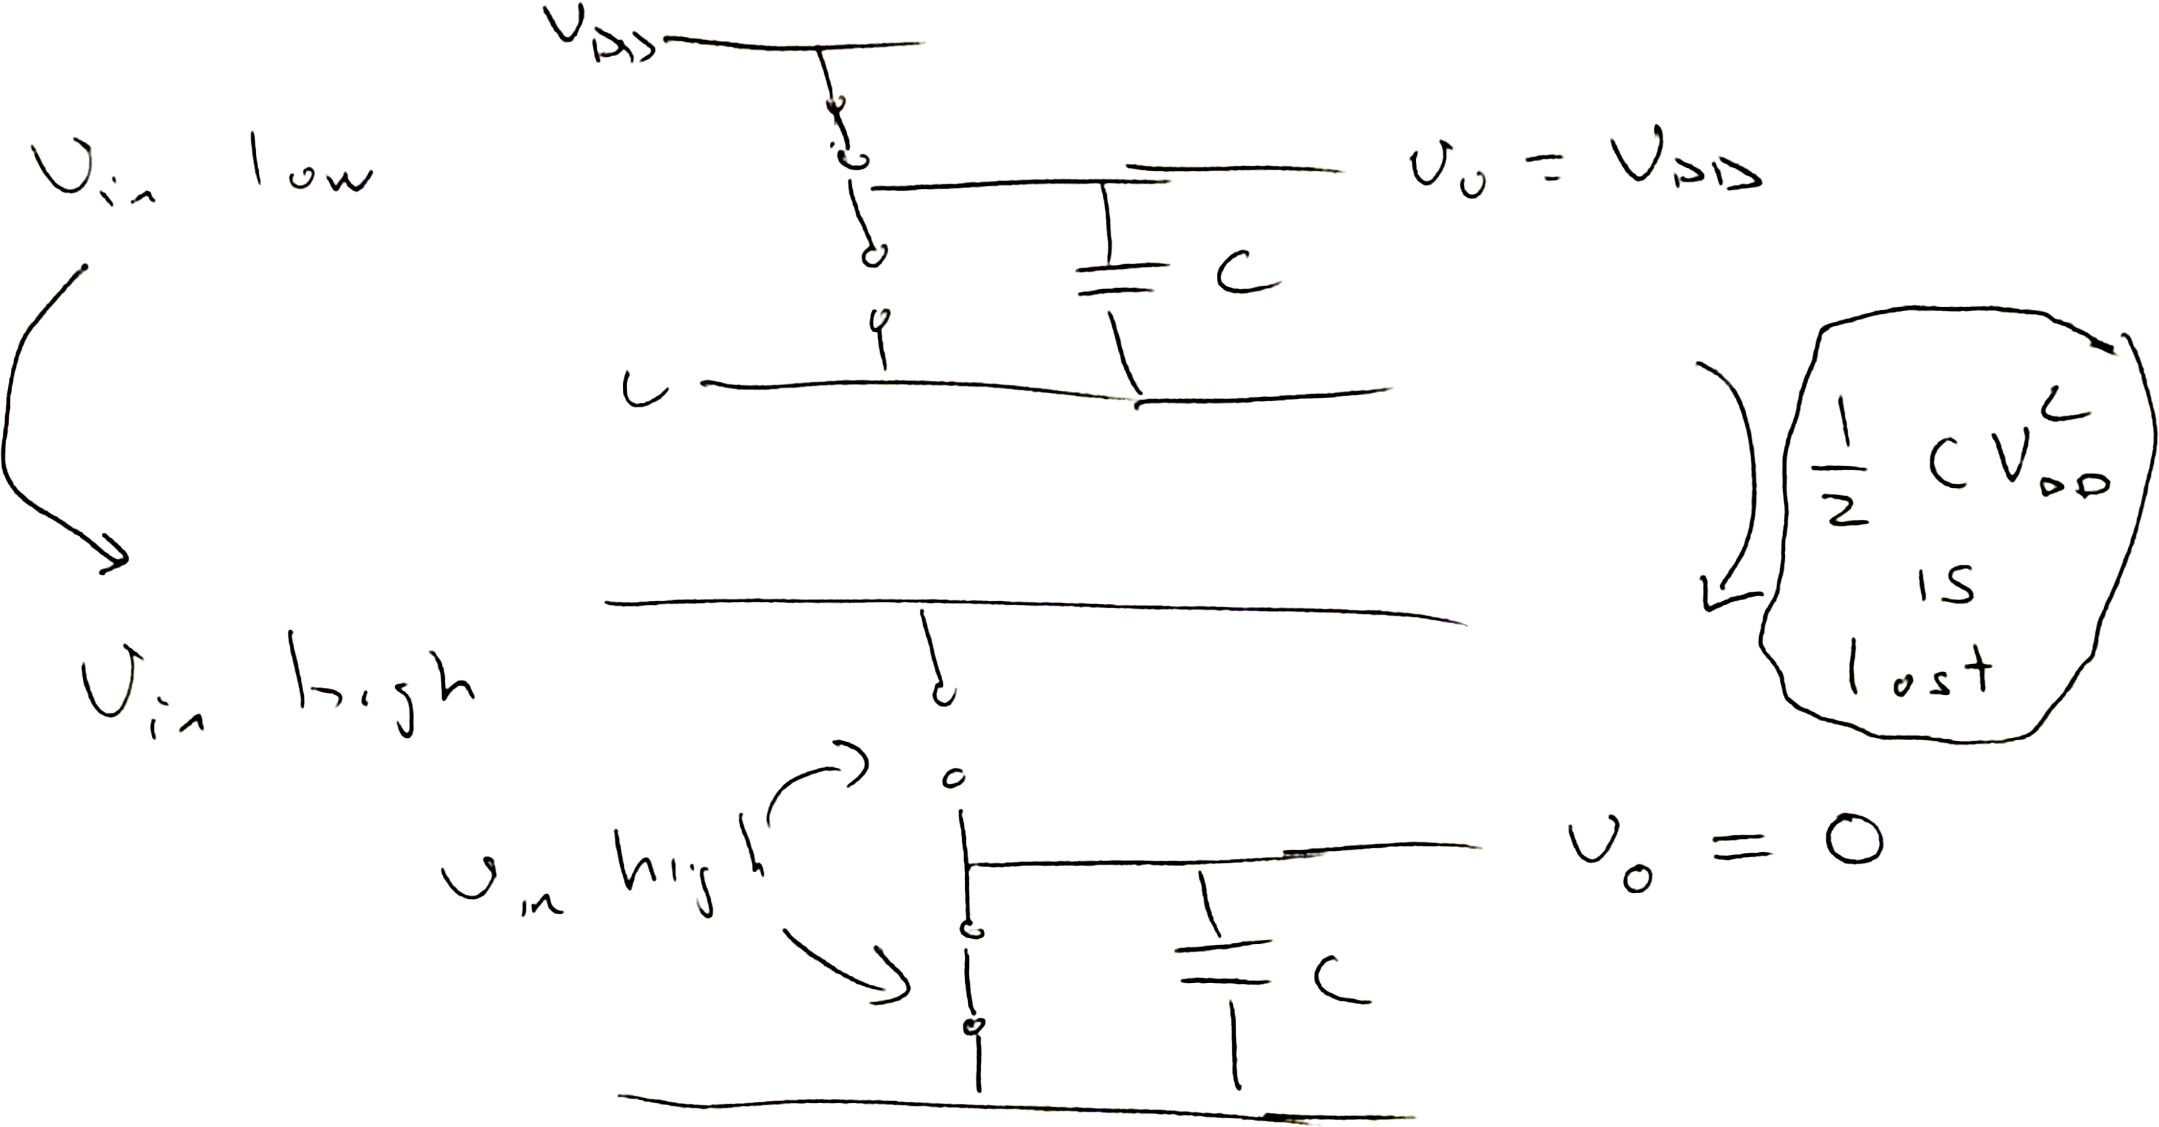 V_DD
v_in low
v_o = V_DD
C
1/2 C V_DD^2
is
lost
v_in high
v_in high
v_o = 0
C